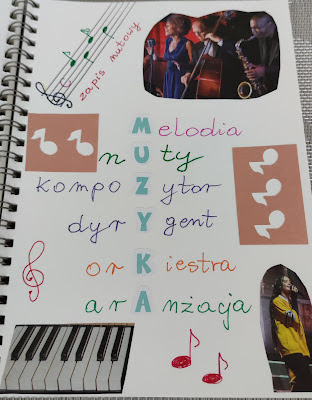 zapis nutowy
Melodia
nUty
kompoZytor
dyrYgent
orKiestra
arAnżacja